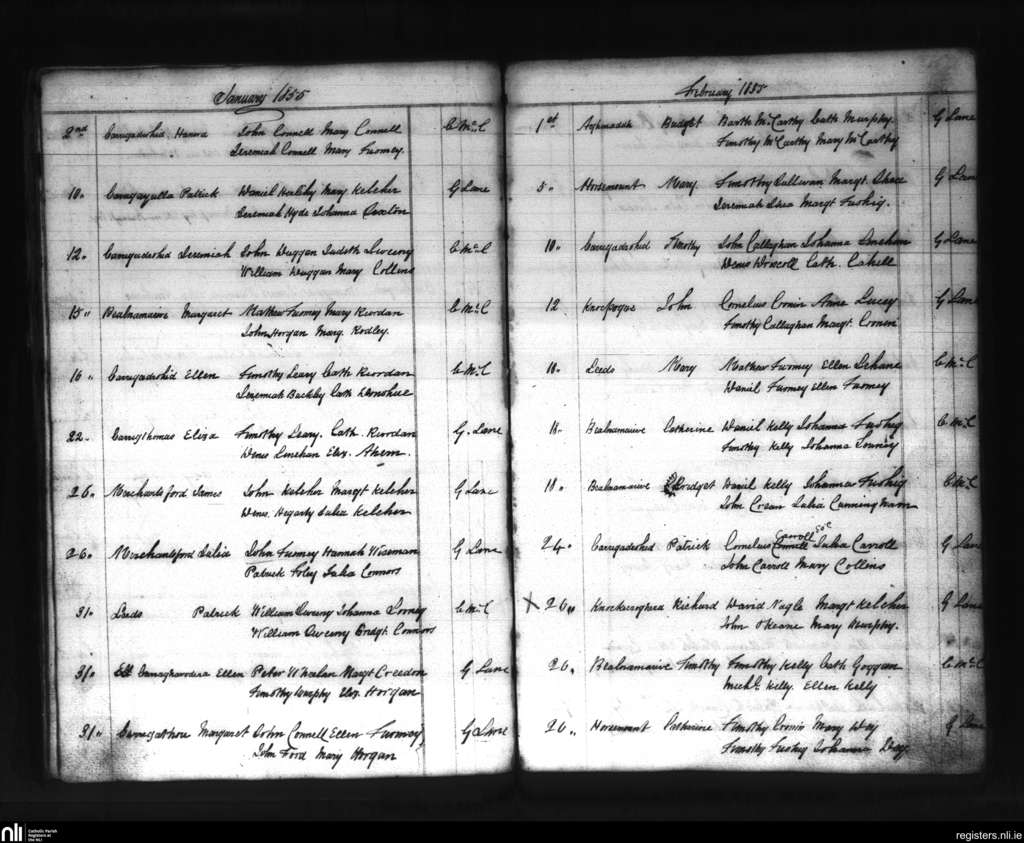 January 1855
2nd Carrigadrohid Hanna John Connell Mary Connell C McC
Jeremiah Connell Mary Twomey.
10. Carrigayulla Patrick Daniel Healihy Mary Kelcher G Lane
Jeremiah Hyde Johanna Sexton
12. Carrigadrohid Jeremiah John Duggan Judeth Sweeny C McC
William Duggan Mary Collins
15 " Bealnamaive Margaret Mathew Twomey Mary Riordan C McC
John Horgan Marg.
16 " Carrigadrohid Ellen Timothy Leary Cath Riordan C McC
Jeremiah Buckley Cath Donohue
22. Carrigthomas Eliza Timothy Leary. Cath. Riordan G. Lane
Denis Linehan Eliz. Ahern.
26. Merchantsford James John Kelcher Margt Kelcher G Lane
Denis. Hegarty Julia Kelcher
26. Merchantsford Julia John Twomey Hannah Wiseman G Lane
Patrick Foley Julia Connors
31. Leeds Patrick William Sweeny Johanna Looney C McC
William Sweeny Bridgt. Connors
31. Ellen Peter Whealan Margt Creedon G Lane
Timothy Murphy Eliz. Horgan
31 " Carrigathou Margaret John Connell Ellen Twomey G Lane
John Ford Mary Horgan
February 1855
1st Aghmadde Budget Barth McCarthy Cath Murphy. G Lane
Timothy McCarthy Mary McCarthy
5. Horsemount Mary. Timothy Sullivan Margt. Shea G Lane
Jeremiah Shea Margt Twohig.
10. Carrigadrohid Timothy John Callaghan Johanna Linehan G Lane
Denis Driscoll Cath. Cahill
12 Knockpogue John Cornelius Cronin Anne Lucey G Lane
Timothy Callaghan Margt. Cronin
18. Leeds Mary Mathew Twomey Ellen Lehane C McC
Daniel Twomey Ellen Twomey
18. Bealnamaive Catherine Daniel Kelly Johanna Twohig C McC
Timothy Kelly Johanna Looney
18. Bealnamaive Bridget Daniel Kelly Johanna Twohig C McC
John Crean Julia Cunningham
24. Carrigadrohid Patrick Cornelius Connell Carroll Julia Carroll G Lane
John Carroll Mary Collins
X 26 " Richard David Nagle Margt Kelcher G Lane
John OKeane Mary Murphy.
26. Bealnamaive Timothy Timothy Kelly Cath Goggan C McC
Michl. Kelly. Ellen Kelly
26 " Horsemount Catherine Timothy Cronin Mary Day G Lane
Timothy Twohig Johanna Day
nli
Catholic Parish
Registers at
the NLI
registers.nli.ie